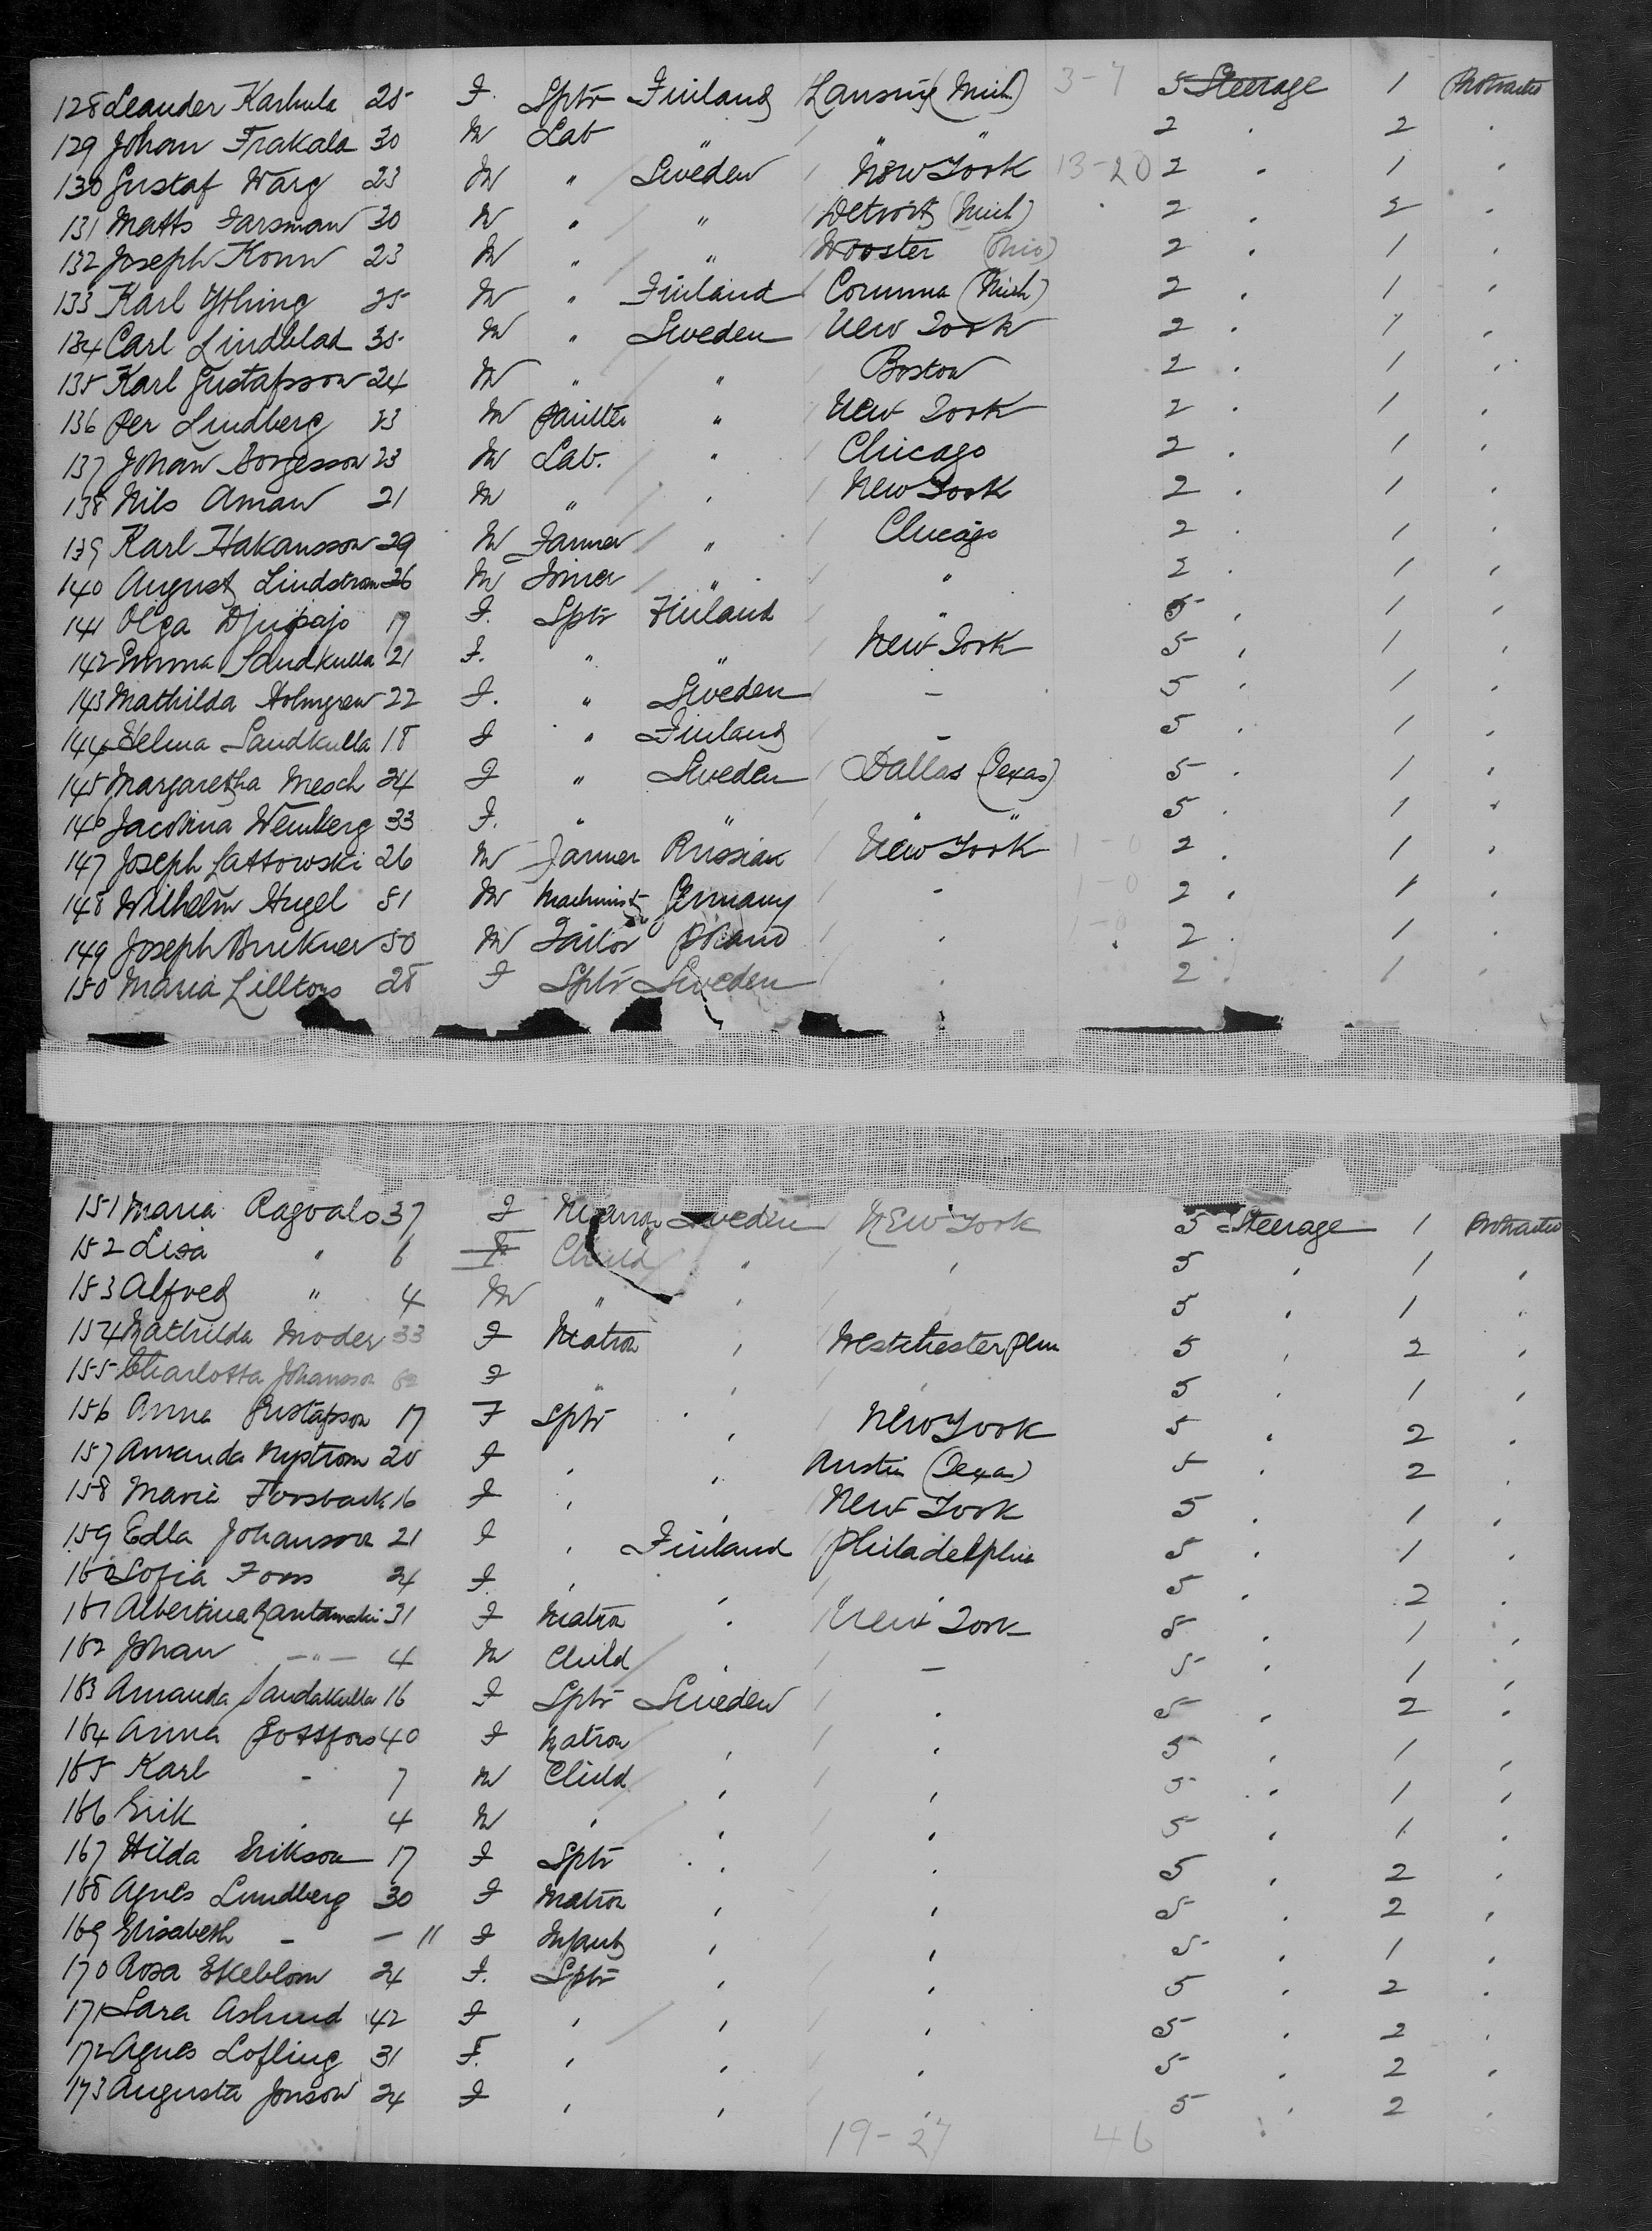 128 Leander Karhula 25 F. Sptr Finland Lansing (Mich) 3-7 5 Steerage 1 Protracted
129 Johan Frakala 30 M Lab " " " 2 . 2 .
130 Gustaf Warg 23 M " Sweden New York 13-20 2 . 1 .
131 Matts Farsman 30 M " " Detroit (Mich) 2 . 2 .
132 Joseph Konn 23 M " " Wooster (Ohio) 2 . 1 .
133 Karl Ything 25 M " Finland Corunna (Mich) 2 . 1 .
134 Carl Lindblad 35 M " Sweden New York 2 . 1 .
135 Karl Gustafsson 24 M " " Boston 2 . 1 .
136 Per Lindberg 23 M Painter " New York 2 . 1 .
137 Johan Borgesson 23 M Lab. " Chicago 2 . 1 .
138 Nils Aman 21 M " . New York 2 . 1 .
139 Karl Hakansson 29 M Farmer " Chicago 2 . 1 .
140 August Lindstrom 26 M Joiner " " 2 . 1 .
141 Olga Djupsjo 19 F. Sptr Finland " 5 . 1 .
142 Emma Sandkulla 21 F. " " New York 5 . 1 .
143 Mathilda Holmgren 22 F. " Sweden - 5 . 1 .
144 Selma Sandkulla 18 F " Finland - 5 . 1 .
145 Margaretha Mesch 24 F " Sweden Dallas (Texas) 5 . 1 .
146 Jacobina Wemberg 33 F. " " " " 5 . 1 .
147 Joseph Lattowski 26 M Farmer Russian New York 1-0 2 . 1 .
148 Wilhelm Hugel 51 M Machinist Germany - 1-0 2 . 1 .
149 Joseph Bruckner 50 M Tailor . 1-0 2 . 1 .
150 Maria Lilltors 28 F Sptr Sweden . 2 . 1 .
151 Maria Ragvals 37 F Matron Sweden New York 5 Steerage 1 Protracted
152 Lisa " 6 F Child " . 5 . 1 .
153 Alfred " 4 M " . 5 . 1 .
154 Mathilda Moder 33 F Matron . Westchester Penn 5 . 2 .
155 Charlotta Johansson F " . . 5 . 1 .
156 Anna Gustafsson 17 F Sptr . New York 5 . 2 .
157 Amanda Nystrom 20 F . . Austin (Texas) 5 . 2 .
158 Maria Forsback 16 F . . New York 5 . 1 .
159 Edla Johansson 21 F . Finland Philadelphia 5 . 1 .
160 Sofia Forss 24 F. . . . 5 . 2 .
161 Albertina Rantamaki 31 F Matron . New York 5 . 1 .
162 Johan -"- 4 M Child . - 5 . 1 .
163 Amanda Sandakulla 16 F Sptr Sweden . 5 . 2 .
164 Anna Gottfors 40 F Matron . . 5 . 1 .
165 Karl - 7 M Child . . 5 . 1 .
166 Erik . 4 M . . . 5 . 1 .
167 Hilda Erikson 17 F Sptr . . 5 . 2 .
168 Agnes Lundberg 30 F Matron . . 5 . 2 .
169 Elisabeth - - 11 F Infant . . 5 . 1 .
170 Rosa Ekeblom 24 F. Sptr . . 5 . 2 .
171 Sara Aslund 42 F . . . 5 . 2 .
172 Agnes Lofling 31 F. . . . 5 . 2 .
173 Augusta Jonson 24 F . . . 5 . 2 .
19-27 46